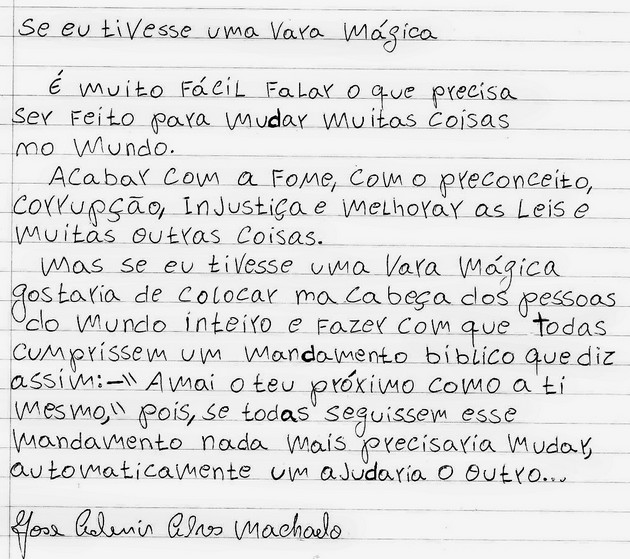 Se eu tivesse uma vara mágica
É muito fácil falar o que precisa
ser feito para mudar muitas coisas
no mundo.
Acabar com a fome, com o preconceito,
corrupção, injustiça e melhorar as leis e
muitas outras coisas.
Mas se eu tivesse uma vara mágica
gostaria de colocar na cabeça dos pessoas
do mundo inteiro e fazer com que todas
cumprissem um mandamento bíblico que diz
assim:-" Amai o teu próximo como a ti
mesmo," pois, se todas seguissem esse
mandamento nada mais precisaria mudar,
automaticamente um ajudaria o outro...
Jose Machado